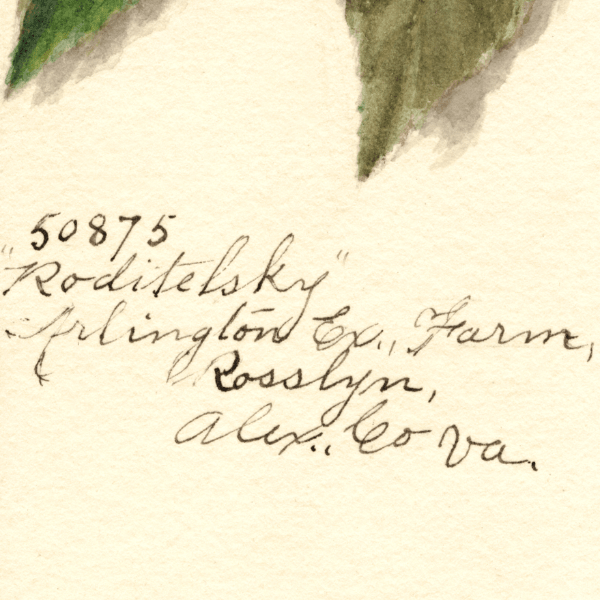 50875
"Roditelsky"
Arlington Ex., Farm,
Rosslyn,
Alex., Co Va.